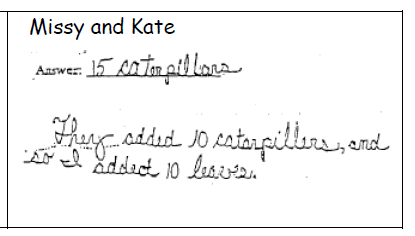 Missy and Kate
Answer: 15 catorpillars
They added 10 catarpillers, and
so I added 10 leaves.